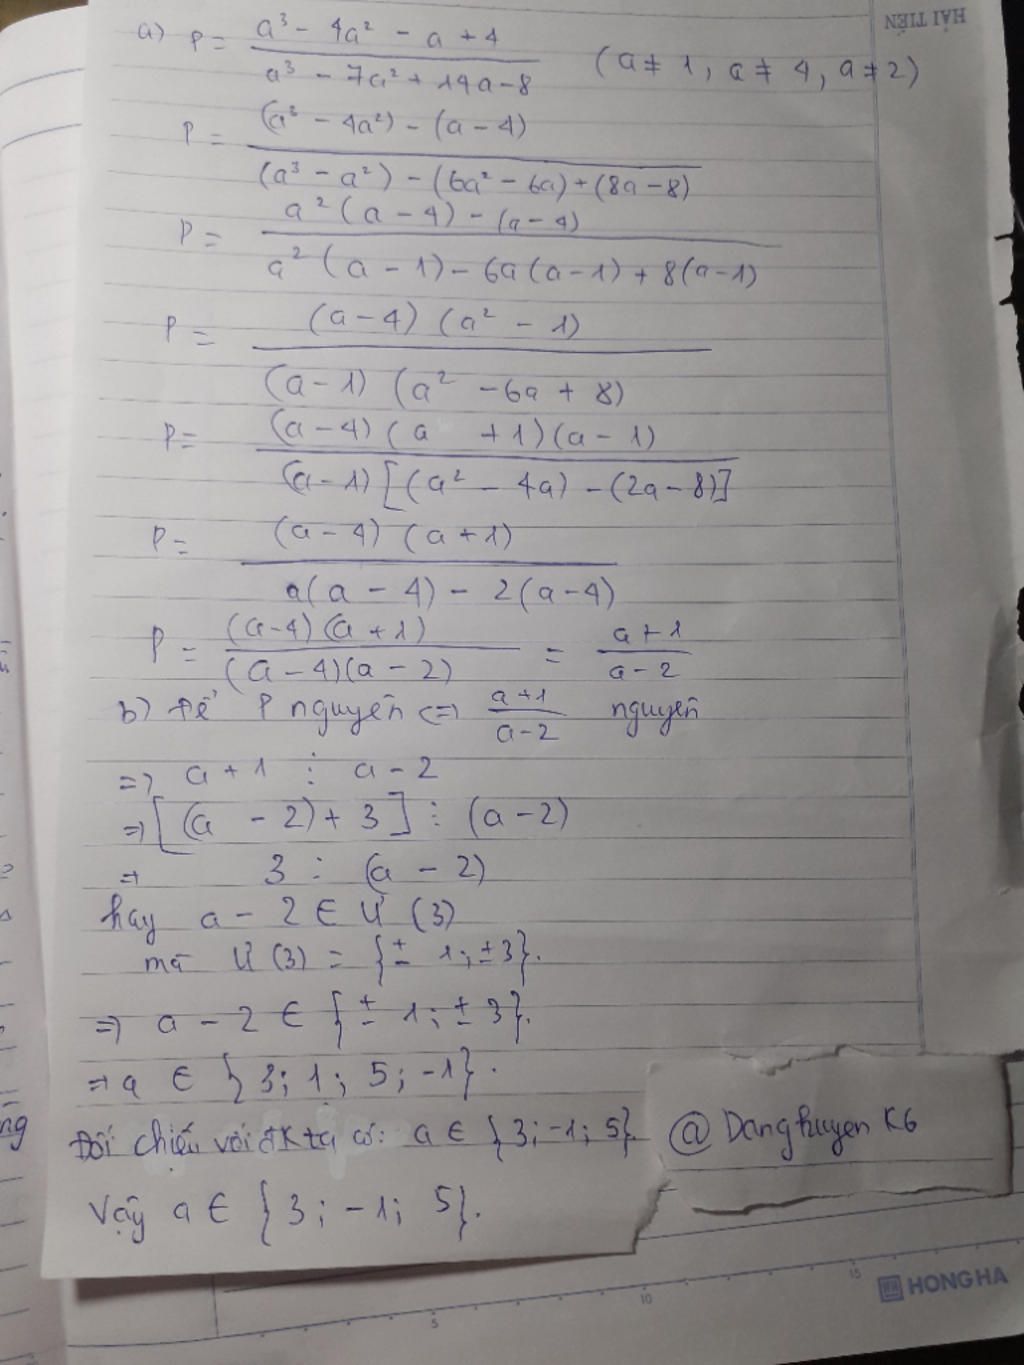 HẢI TIẾN
a) P = (a³ - 4a² - a + 4) / (a³ - 7a² + 14a - 8) (a ≠ 1, a ≠ 4, a ≠ 2)
P = ((a³ - 4a²) - (a - 4)) / ((a³ - a²) - (6a² - 6a) + (8a - 8))
P = (a²(a - 4) - (a - 4)) / (a²(a - 1) - 6a(a - 1) + 8(a - 1))
P = ((a - 4)(a² - 1)) / ((a - 1)(a² - 6a + 8))
P = ((a - 4)(a + 1)(a - 1)) / ((a - 1)[(a² - 4a) - (2a - 8)])
P = ((a - 4)(a + 1)) / (a(a - 4) - 2(a - 4))
P = ((a - 4)(a + 1)) / ((a - 4)(a - 2)) = (a + 1) / (a - 2)
b) Để P nguyên <=> (a + 1) / (a - 2) nguyên
=> a + 1 ⋮ a - 2
=> [(a - 2) + 3] ⋮ (a - 2)
=> 3 ⋮ (a - 2)
hay a - 2 ∈ Ư (3)
mà Ư (3) = {± 1; ± 3}.
=> a - 2 ∈ {± 1; ± 3}.
=> a ∈ {3; 1; 5; -1}.
Đối chiếu với đk ta có: a ∈ {3; -1; 5}.
@ Danghuyen K6
Vậy a ∈ {3; -1; 5}.
5 10 15
HONG HA